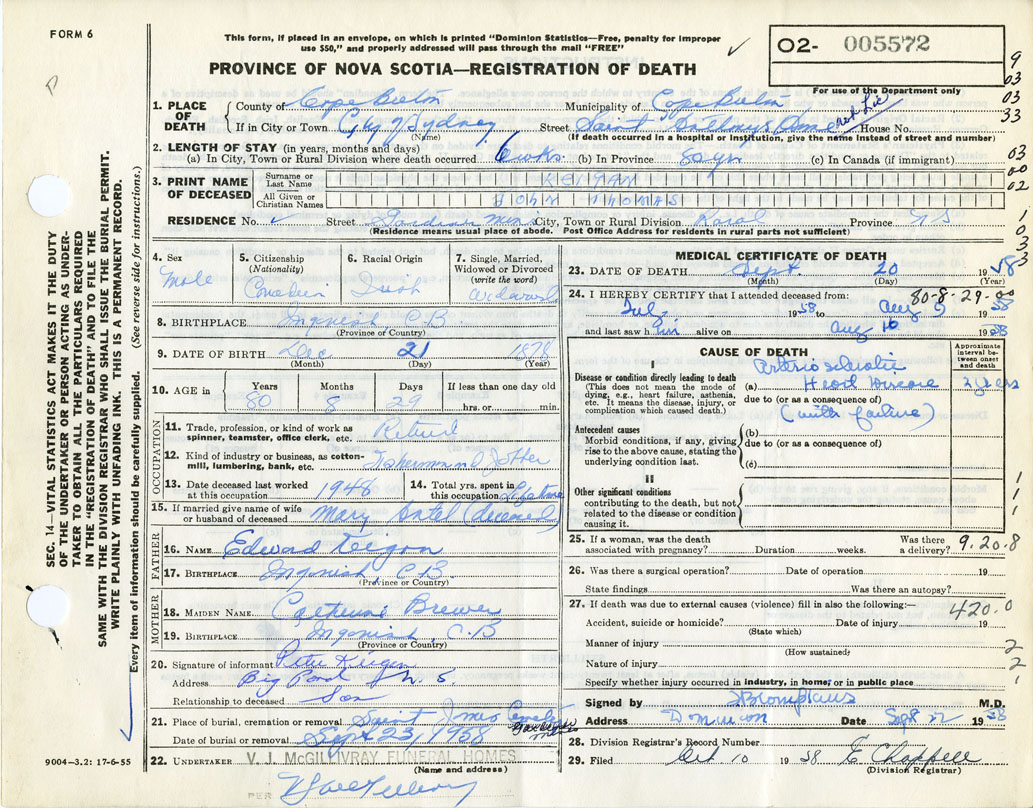 FORM 6
This form, if placed in an envelope, on which is printed "Dominion Statistics—Free, penalty for improper
use $50," and properly addressed will pass through the mail "FREE"
O2- 005572
PROVINCE OF NOVA SCOTIA—REGISTRATION OF DEATH
For use of the Department only
9
03
03
33
03
00
02
1
0
3
3
1. PLACE OF DEATH County of Cape Breton Municipality of Cape Breton
If in City or Town City of Sydney Street Saint House No.
(Name) (If death occurred in a hospital or institution, give the name instead of street and number)
2. LENGTH OF STAY (in years, months and days)
(a) In City, Town or Rural Division where death occurred 6 wks (b) In Province 80 yr (c) In Canada (if immigrant)
3. PRINT NAME OF DECEASED Surname or Last Name KEIGAN
All Given or Christian Names JOHN THOMAS
RESIDENCE No. Street Gardiner Mines City, Town or Rural Division Rural Province N S
(Residence means usual place of abode. Post Office Address for residents in rural parts not sufficient)
4. Sex
Male
5. Citizenship
(Nationality)
Canadian
6. Racial Origin
Irish
7. Single, Married,
Widowed or Divorced
(write the word)
Widowed
8. BIRTHPLACE Ingonish C.B
(Province or Country)
9. DATE OF BIRTH Dec 21 1878
(Month) (Day) (Year)
10. AGE in Years Months Days If less than one day old
80 8 29 hrs. or min.
OCCUPATION
11. Trade, profession, or kind of work as
spinner, teamster, office clerk, etc. Retired
12. Kind of industry or business, as cotton-
mill, lumbering, bank, etc. Fisherman
13. Date deceased last worked
at this occupation 1948
14. Total yrs. spent in
this occupation Lifetime
15. If married give name of wife
or husband of deceased Mary (deceased)
FATHER
16. NAME Edward Keigan
17. BIRTHPLACE Ingonish C B
(Province or Country)
MOTHER
18. MAIDEN NAME Catherine Brewer
19. BIRTHPLACE Ingonish, C.B
(Province or Country)
20. Signature of informant Peter Keigan
Address Big Pond N. S
Relationship to deceased Son
21. Place of burial, cremation or removal Saint
Date of burial or removal Sept 23, 1958
22. UNDERTAKER V. J. McGILLIVRAY FUNERAL HOMES
(Name and address)
PER
MEDICAL CERTIFICATE OF DEATH
23. DATE OF DEATH Sept 20 1958
(Month) (Day) (Year)
80-8-29-00
24. I HEREBY CERTIFY that I attended deceased from:
July 1958 to Aug 1958
and last saw him alive on Aug 10 1958
CAUSE OF DEATH
Approximate interval between onset and death
I
Disease or condition directly leading to death
(This does not mean the mode of
dying, e.g., heart failure, asthenia,
etc. It means the disease, injury, or
complication which caused death.)
(a) Arteriosclerotic
Heart Disease 2 years
due to (or as a consequence of)
(with failure)
Antecedent causes
Morbid conditions, if any, giving
rise to the above cause, stating the
underlying condition last.
(b)
due to (or as a consequence of)
(c)
II
Other significant conditions
contributing to the death, but not
related to the disease or condition
causing it.
1
1
1
25. If a woman, was the death
associated with pregnancy? Duration weeks. Was there
a delivery? 9.20.8
26. Was there a surgical operation? Date of operation 19
State findings Was there an autopsy?
27. If death was due to external causes (violence) fill in also the following:—
420.0
Accident, suicide or homicide? Date of injury 19
(State which)
Manner of injury
(How sustained)
2
Nature of injury
2
Specify whether injury occurred in industry, in home, or in public place
1
Signed by M.D.
Address Dominion Date Sept 22 1958
28. Division Registrar's Record Number
29. Filed Oct 10 1958 E Chappell
(Division Registrar)
SEC. 14—VITAL STATISTICS ACT MAKES IT THE DUTY
OF THE UNDERTAKER OR PERSON ACTING AS UNDER-
TAKER TO OBTAIN ALL THE PARTICULARS REQUIRED
IN THE "REGISTRATION OF DEATH" AND TO FILE THE
SAME WITH THE DIVISION REGISTRAR WHO SHALL ISSUE THE BURIAL PERMIT.
WRITE PLAINLY WITH UNFADING INK. THIS IS A PERMANENT RECORD.
Every item of information should be carefully supplied. (See reverse side for instructions.)
9004—3.2: 17-6-55